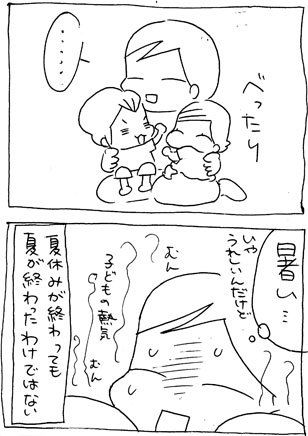 べったり
・・・・・
暑い…
いや
うれしいんだけど
むん
子どもの熱気
むん
夏休みが終わっても
夏が終わったわけではない